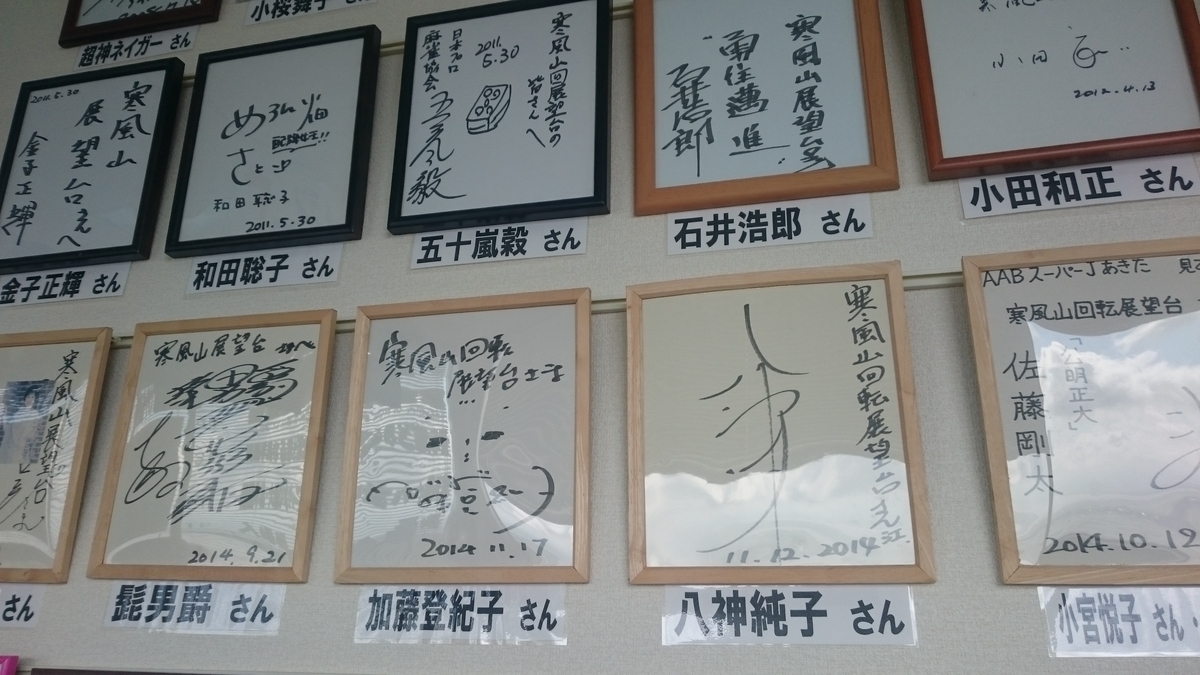 超神ネイガー さん
小桜舞子 さん
2011.5.30
寒風山
展望台さんへ
金子正輝
金子正輝 さん
めろん畑
さと子
和田聡子
2011.5.30
和田聡子 さん
寒風山回展望台の
皆さんへ
2011.
5.30
日本プロ
麻雀協会
五十嵐毅
五十嵐毅 さん
寒風山展望台
勇往邁進
石井浩郎
石井浩郎 さん
小田
2012.4.13
小田和正 さん
寒風山展望台
さん
寒風山展望台
2014.9.21
髭男爵 さん
寒風山回転
展望台さま
2014 11.17
加藤登紀子 さん
寒風山回転展望台さん江
11.12.2014
八神純子 さん
AABスーパーJあきた
寒風山回転展望台
「公明正大」
佐藤剛太
2014.10.12
小宮悦子 さん・